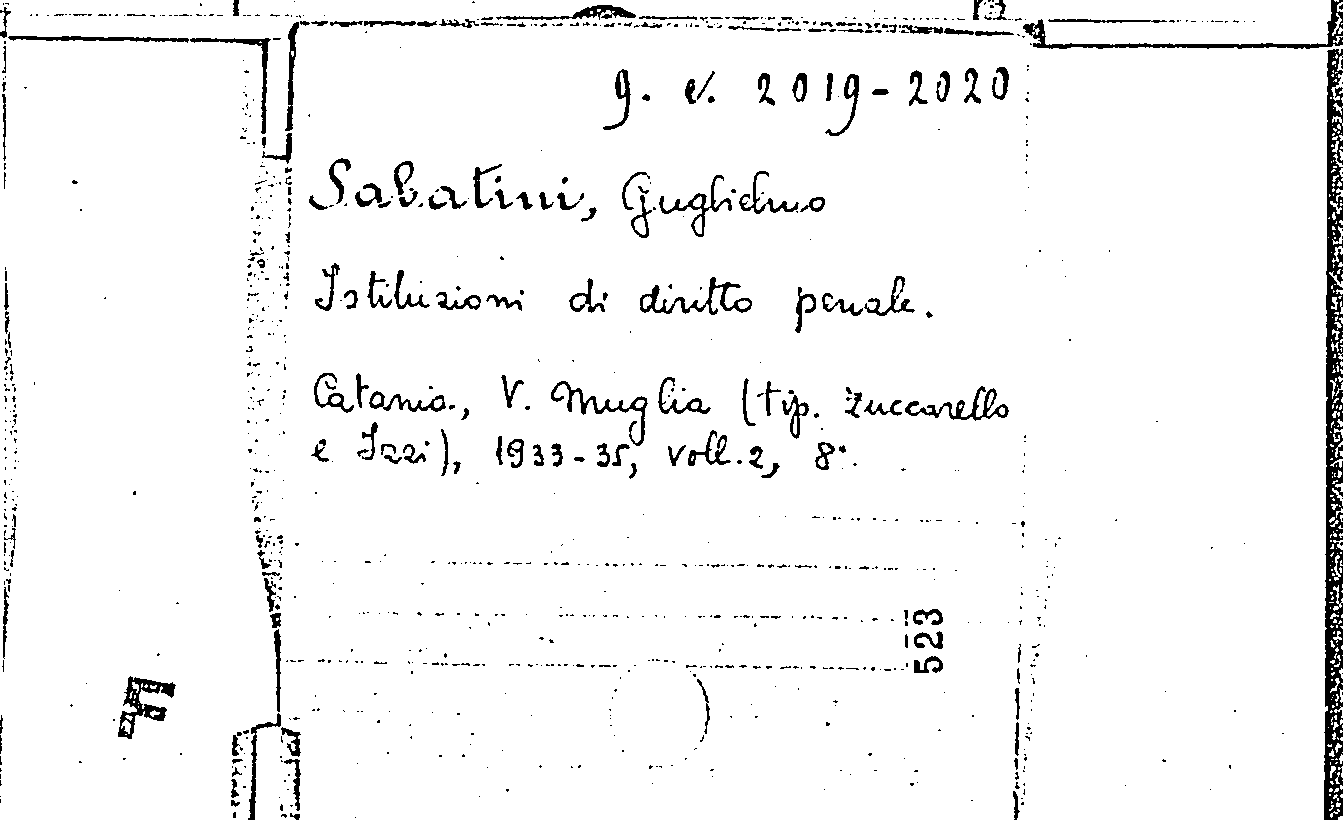 g. v. 2019-2020
Sabatini, Guglielmo
Istituzioni di diritto penale.
Catania, V. Muglia (tip. Zuccarello
e Izzi), 1933-35, voll. 2, 8°.
523
F